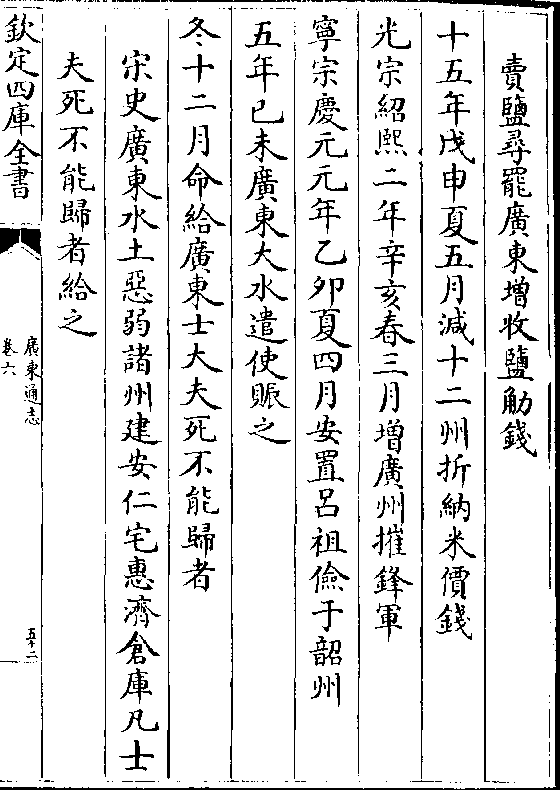 賣鹽尋罷廣東增收鹽觔錢
十五年戊申夏五月減十二州折納米價錢
光宗紹熙二年辛亥春三月增廣州摧鋒軍
寧宗慶元元年乙卯夏四月安置呂祖儉于韶州
五年己未廣東大水遣使賑之
冬十二月命給廣東士大夫死不能歸者
宋史廣東水土惡弱諸州建安仁宅惠濟倉庫凡士
夫死不能歸者給之
欽定四庫全書
廣東通志
卷六
五十二